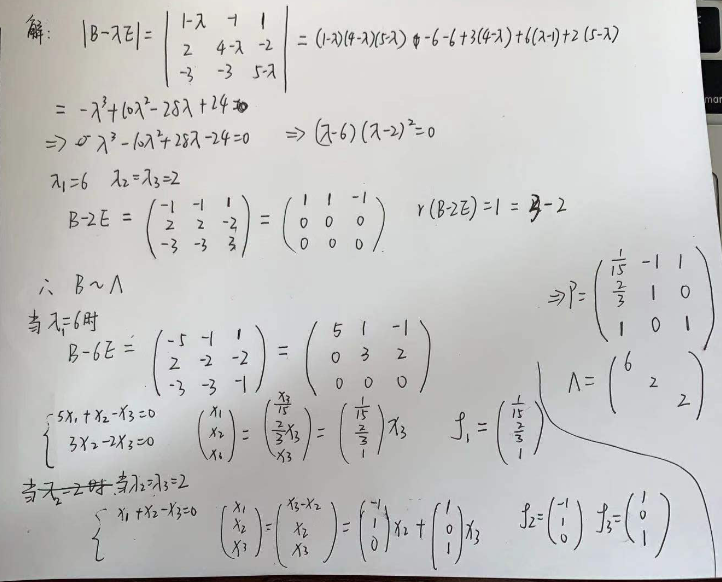 解: |B-λE| = | 1-λ -1 1 ; 2 4-λ -2 ; -3 -3 5-λ | = (1-λ)(4-λ)(5-λ) -6-6+3(4-λ)+6(λ-1)+2(5-λ)
= -λ³+10λ²-28λ+24
⇒ λ³-10λ²+28λ-24=0 ⇒ (λ-6)(λ-2)²=0
λ₁=6 λ₂=λ₃=2
B-2E = ( -1 -1 1 ; 2 2 -2 ; -3 -3 3 ) = ( 1 1 -1 ; 0 0 0 ; 0 0 0 ) r(B-2E)=1=3-2
∴ B~Λ
⇒P= ( 1/15 -1 1 ; 2/3 1 0 ; 1 0 1 )
当λ₁=6时
B-6E = ( -5 -1 1 ; 2 -2 -2 ; -3 -3 -1 ) = ( 5 1 -1 ; 0 3 2 ; 0 0 0 )
Λ= ( 6 ; 2 ; 2 )
{ 5x₁+x₂-x₃=0 ; 3x₂-2x₃=0 ( x₁ ; x₂ ; x₃ ) = ( x₃/15 ; 2/3 x₃ ; x₃ ) = ( 1/15 ; 2/3 ; 1 ) x₃ ρ₁= ( 1/15 ; 2/3 ; 1 )
当λ₂=2时 当λ₂=λ₃=2
{ x₁+x₂-x₃=0 ( x₁ ; x₂ ; x₃ ) = ( x₃-x₂ ; x₂ ; x₃ ) = ( -1 ; 1 ; 0 ) x₂+ ( 1 ; 0 ; 1 ) x₃ ρ₂= ( -1 ; 1 ; 0 ) ρ₃= ( 1 ; 0 ; 1 )